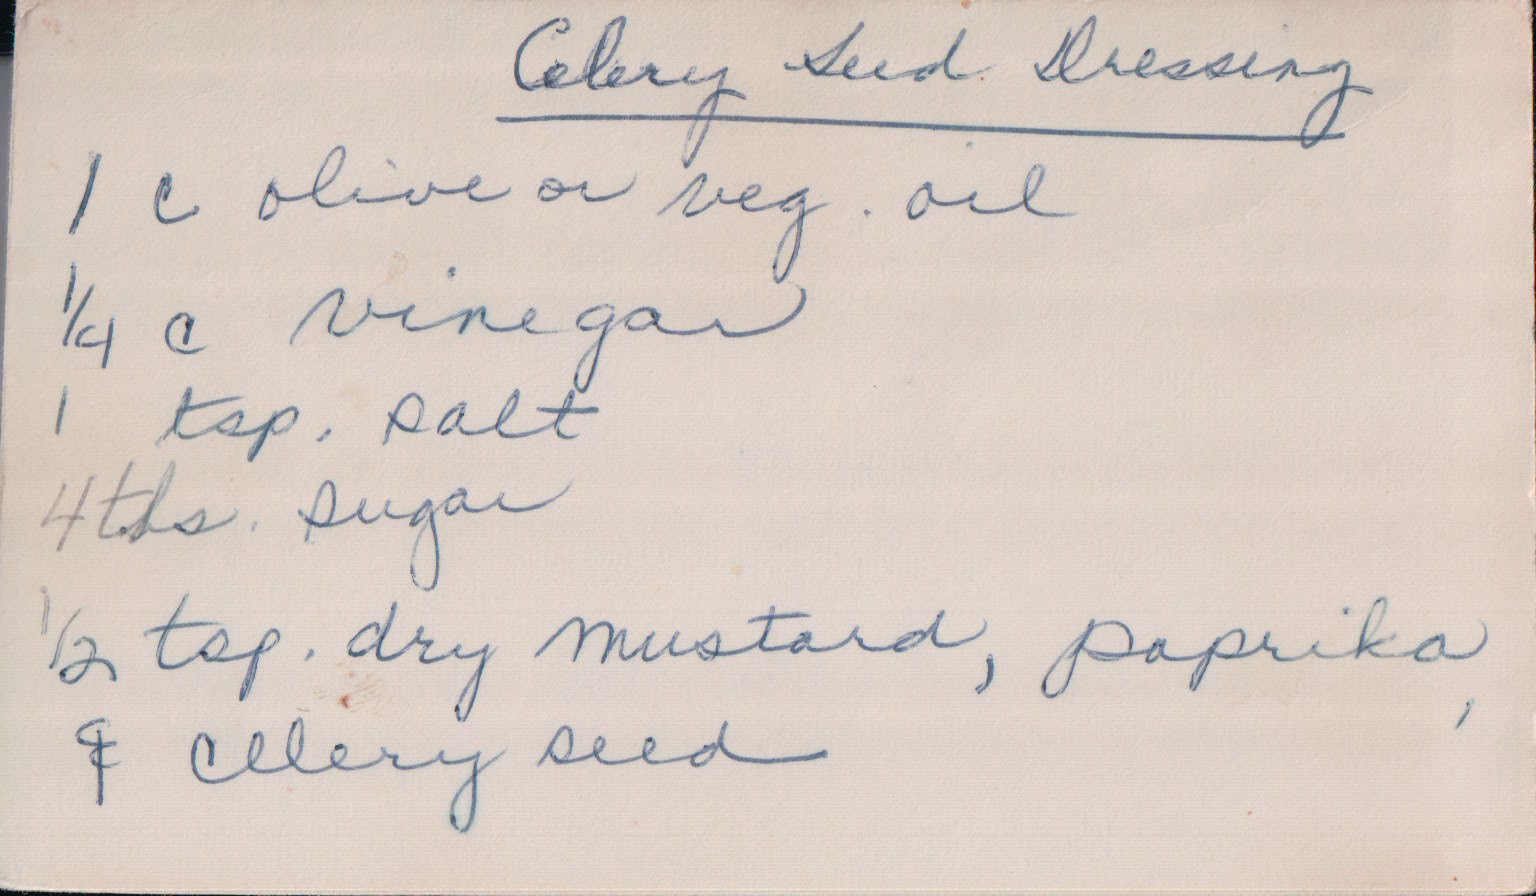 Celery Seed Dressing
1 c olive or veg. oil
1/4 c vinegar
1 tsp. salt
4 tbs. sugar
1/2 tsp. dry mustard, paprika,
& celery seed